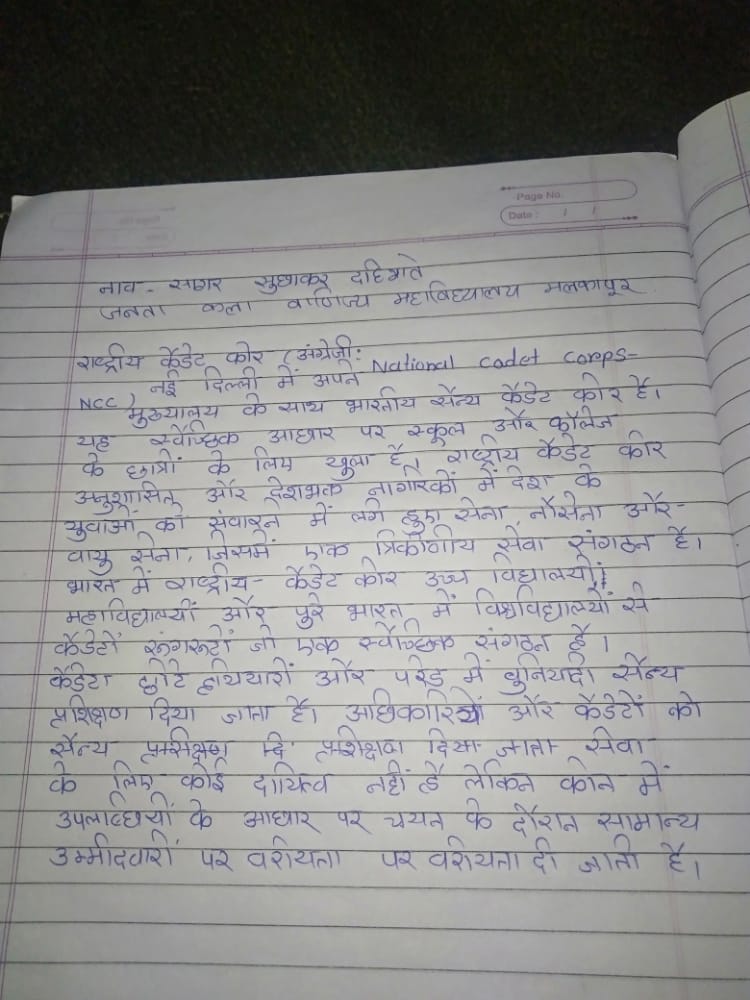 Page No.
Date : / /
नाव - सागर सुधाकर दहिभाते
जनता कला वाणिज्य महाविद्यालय मलकापूर
राष्ट्रीय कॅडेट कोर (अंग्रेजी:
National Cadet Corps-
NCC) नई दिल्ली में अपने
मुख्यालय के साथ भारतीय सैन्य कैडेट कोर है।
यह स्वैच्छिक आधार पर स्कूल और कॉलेज
के छात्रों के लिए खुला है, राष्ट्रीय कैडेट कोर
अनुशासित और देशभक्त नागरिकों में देश के
युवाओं को संवारने में लगे हुए सेना, नौसेना और-
वायु सेना, जिसमें एक त्रिकोणीय सेवा संगठन है।
भारत में राष्ट्रीय- कैडेट कोर उच्च विद्यालयों,
महाविद्यालयों और पुरे भारत में विश्वविद्यालयों से
कैडेटों रूंगरूटों जो एक स्वैच्छिक संगठन है।
कैडेटों छोटे हथियारों और परेड में बुनियादी सैन्य
प्रशिक्षण दिया जाता है। अधिकारियों और कैडेटों को
सैन्य प्रशिक्षण दि प्रशिक्षण दिया जाता सेवा
के लिए कोई दायित्व नहीं है लेकिन कोन में
उपलब्धियों के आधार पर चयन के दौरान सामान्य
उम्मीदवारों पर वरीयता पर वरीयता दी जाती है।